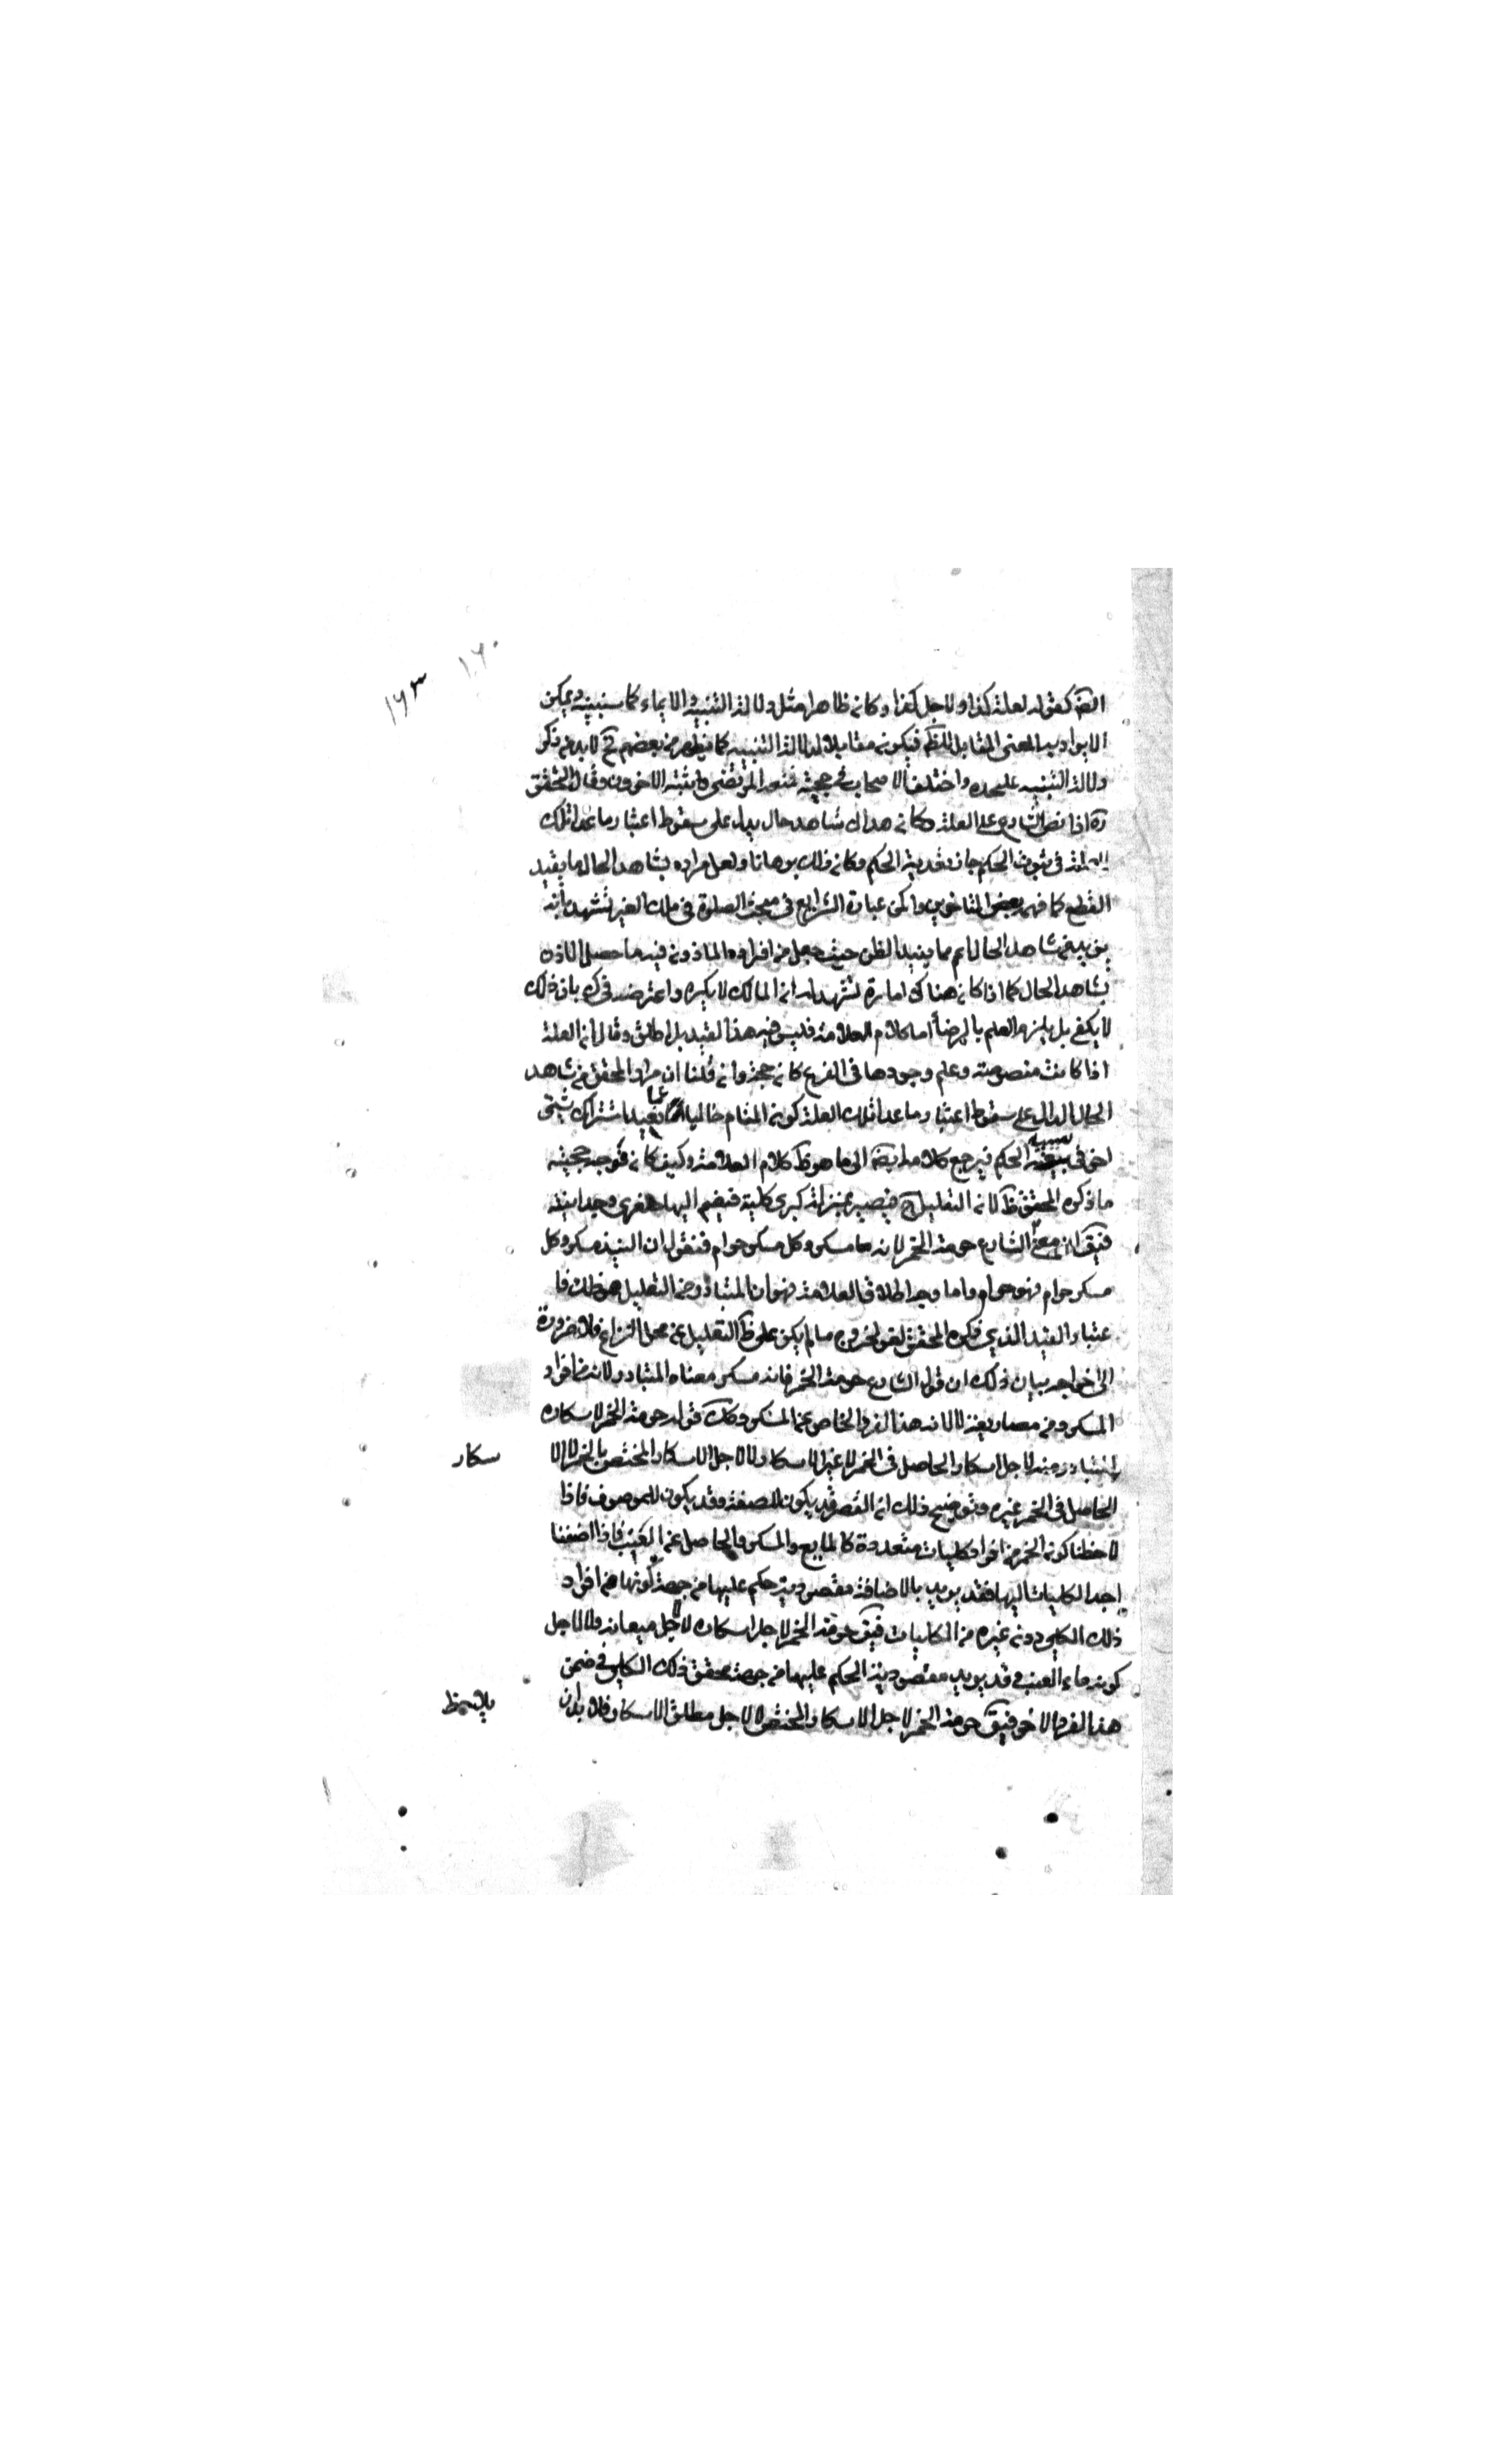 ١٦٠
١٦٣
كقوله لعلة كذا ولاجل كذا وكان ظاهرا مثل دلالة التنبيه والايماء كما سنبينه ويمكن
المعنى المقابل للظ فيكون مقابلا لدلالة التنبيه كما يظهر من بعضهم فح لا بد من ذكر
دلالة التنبيه عليحده واختلف الاصحاب في حجيته فمنعه المرتضى واثبته الاخرون وقال المحقق
ره اذا نص الشارع على العلة وكان هناك شاهد حال يدل على سقوط اعتبار ما عدا تلك
العلة في ثبوت الحكم جاز تعدية الحكم وكان ذلك برهانا ولعل مراده بشاهد الحال ما يفيد
القطع كما فهمه بعض المتاخرين ولكن عبارة الشرايع في مبحث الصلوة في ملك الغير تشهد بانه
يريد من شاهد الحال اعم مما يفيد الظن حيث جعل من افراد الماذون فيه ما حصل الاذن
بشاهد الحال كما اذا كان هناك امارة تشهد ان المالك لا يكره واعترضه في ك بان ذلك
لا يكفي بل يلزم العلم بالرضا اما كلام العلامة فليس فيه هذا القيد بل اطلق وقال ان العلة
اذا كانت منصوصة وعلم وجودها في الفرع كان حجة وان قلنا ان مراد المحقق من شاهد
الحال الدال على سقوط اعتبار ما عدا تلك العلة كون المقام خاليا عما يفيد اشتراك شيئ
اخر في سببية الحكم فيرجع كلامه ايضا الى ما هو ظ كلام العلامة وكيف كان فوجه حجية
ما ذكره المحقق ظ لان التعليل ح فيصير بمنزلة كبرى كلية فيضم اليها صغرى وجدانية
فيق ان معنى الشارع حرمت الخمر لانه مسكر وكل مسكر حرام فنقول ان النبيذ مسكر وكل
مسكر حرام فهو حرام واما وجه اطلاق العلامة فهو ان المتبادر من التعليل هو ذلك فا
عتبار القيد الذي ذكره المحقق لغو لخروج ما لم يكن على ظ التعليل عن محل النزاع فلا ضرورة
الى اخراجه بيان ذلك ان قول الشارع حرمت الخمر فانه مسكر معناه المتبادر لانه من افراد
المسكر ومن مصاديقه لا لانه هذا الفرد الخاص من المسكر وكك قوله حرمت الخمر لاسكاره
المتبادر منه لاجل اسكار الحاصل في الخمر لا غير الاسكار لا لاجل الاسكار المختص بالخمر لا الا
سكار
الحاصل في الخمر غيره وتوضيح ذلك ان القصر قد يكون للصفة وقد يكون للموصوف فاذا
لاحظنا كون الخمر من افراد كليات متعددة كالمايع والمسكر والحاصل من العنب فاذا اضفنا
احد الكليات اليها فقد يريد بالاضافة مقصودية حكم عليها من جهة كونها من افراد
ذلك الكلي دون غيره من الكليات فيق حرمت الخمر لاجل اسكاره لا لاجل ميعانه ولا لاجل
كونه ماء العنب وقد يريد مقصودية الحكم عليها من جهة تحقق ذلك الكلي في ضمن
هذا الفرد الاخر فيق حرمت الخمر لاجل الاسكار المختص لا لاجل مطلق الاسكار فلا بد ان
يلاحظ